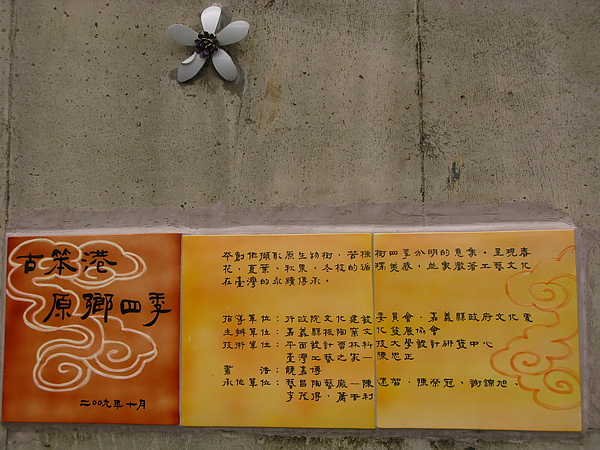 古笨港
原鄉四季
二00九年十月
本創作擷取原生物樹,苦楝樹四季分明的意象,呈現春
花、夏葉、秋果、冬枝的循環美感,並象徵著工藝文化
在臺灣的永續傳承。
指導單位:行政院文化建設委員會、嘉義縣政府文化處
主辦單位:嘉義縣板陶窯文化發展協會
技術單位:平面設計雲林科技大學設計研發中心
臺灣工藝之家—陳忠正
書法:
承作單位:藝昌陶藝廠—陳
陳榮冠、謝錦旭、
李茂得、